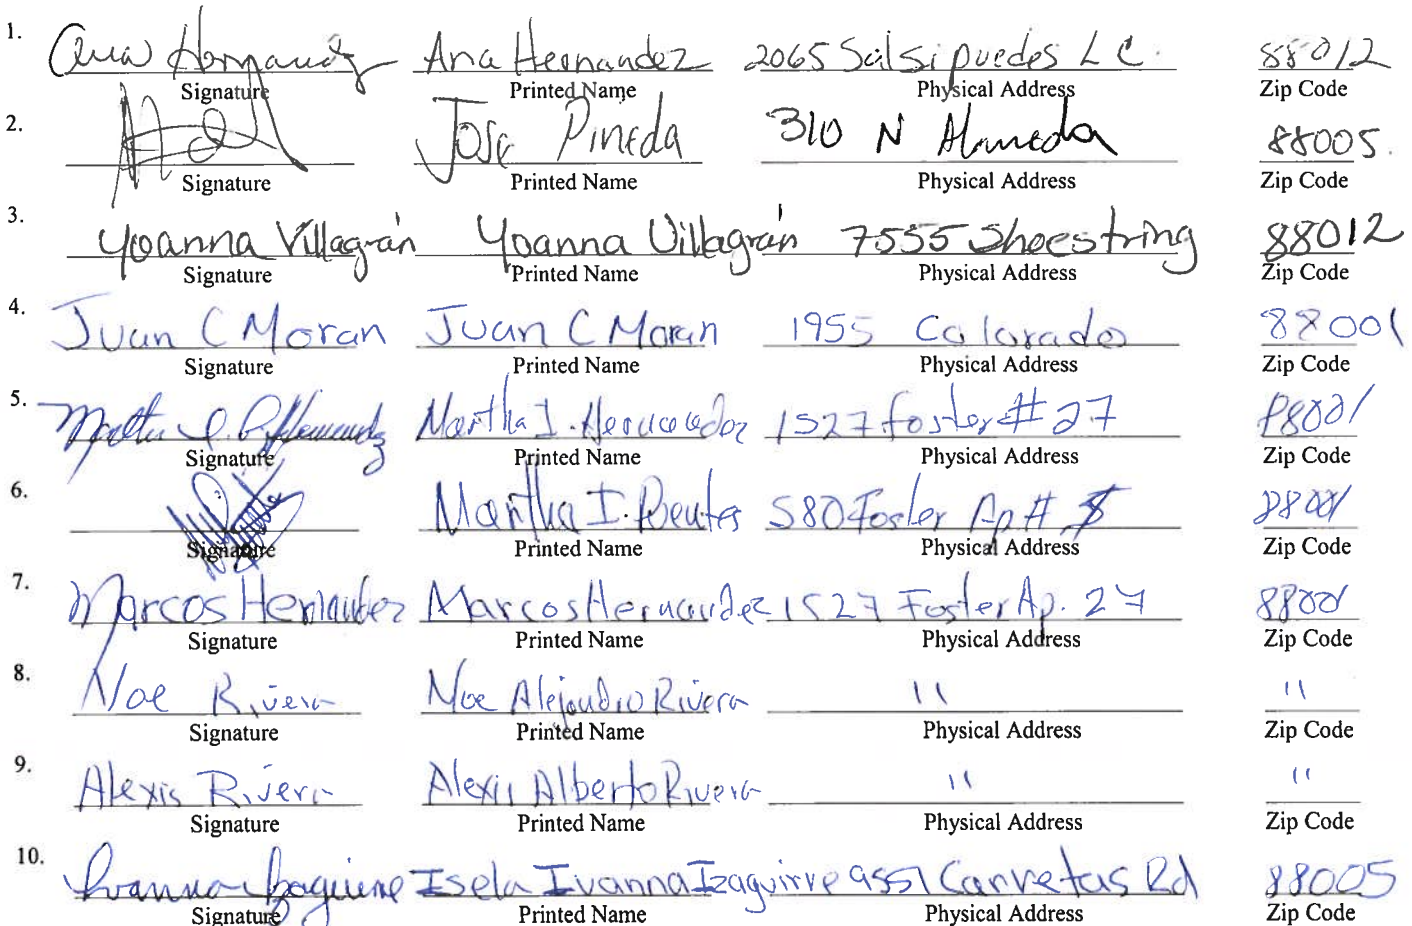 1. Ana Hernandez Ana Hernandez 2065 Salsipuedes L C. 88012
Signature Printed Name Physical Address Zip Code
2. Jose Pineda 310 N Alameda 88005.
Signature Printed Name Physical Address Zip Code
3. Yoanna Villagrán Yoanna Villagrán 7555 Shoestring 88012
Signature Printed Name Physical Address Zip Code
4. Juan C Moran Juan C Moran 1955 Colorado 88001
Signature Printed Name Physical Address Zip Code
5. Martha I. Hernandez 1527 Foster # 27 88001
Signature Printed Name Physical Address Zip Code
6. Martha I. 580 Foster Ap # 88001
Signature Printed Name Physical Address Zip Code
7. Marcos Hernandez Marcos Hernandez 1527 Foster Ap. 27 88001
Signature Printed Name Physical Address Zip Code
8. Noe Rivera Noe Alejandro Rivera " "
Signature Printed Name Physical Address Zip Code
9. Alexis Rivera Alexis Alberto Rivera " "
Signature Printed Name Physical Address Zip Code
10. Ivanna Izaguirre Isela Ivanna Izaguirre 9551 Carretas Rd 88005
Signature Printed Name Physical Address Zip Code